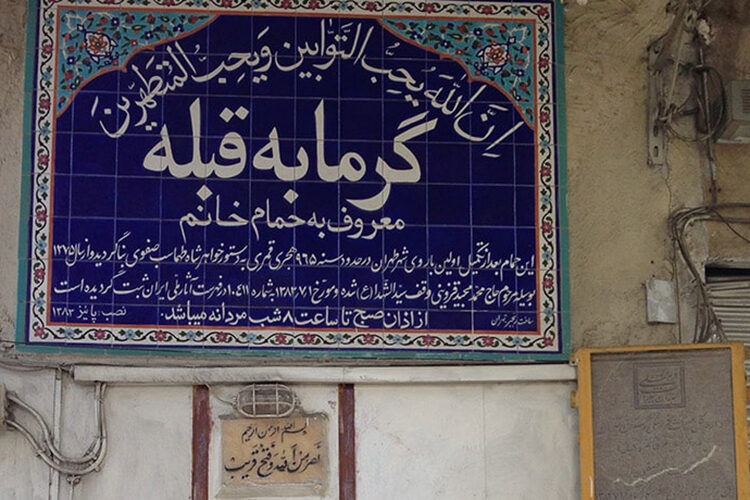 اِنَّ اللّهَ یُحِبُّ التَّوّابینَ وَ یُحِبُّ المُتَطَهِّرینَ
گرمابه قبله
معروف به حمام خانم
این حمام بعد از تکمیل اولین باروی شهر طهران در حدود سنه ۹۶۵ هجری قمری به دستور خواهر شاه طهماسب صفوی بنا گردید و از سال ۱۲۷۵
بوسیله مرحوم حاج محمد عبدالمجید قزوینی وقف سیدالشهدا (ع) شده و مورخ ۱۳۸۳٫۷٫۱ به شماره ۱۰٫۴۱۱ در فهرست آثار ملی ایران ثبت گردیده است
از اذان صبح تا ساعت ۸ شب مردانه میباشد.
نصب: پائیز ۱۳۸۳
بسم الله الرحمن الرحیم
نصر من الله و فتح قریب